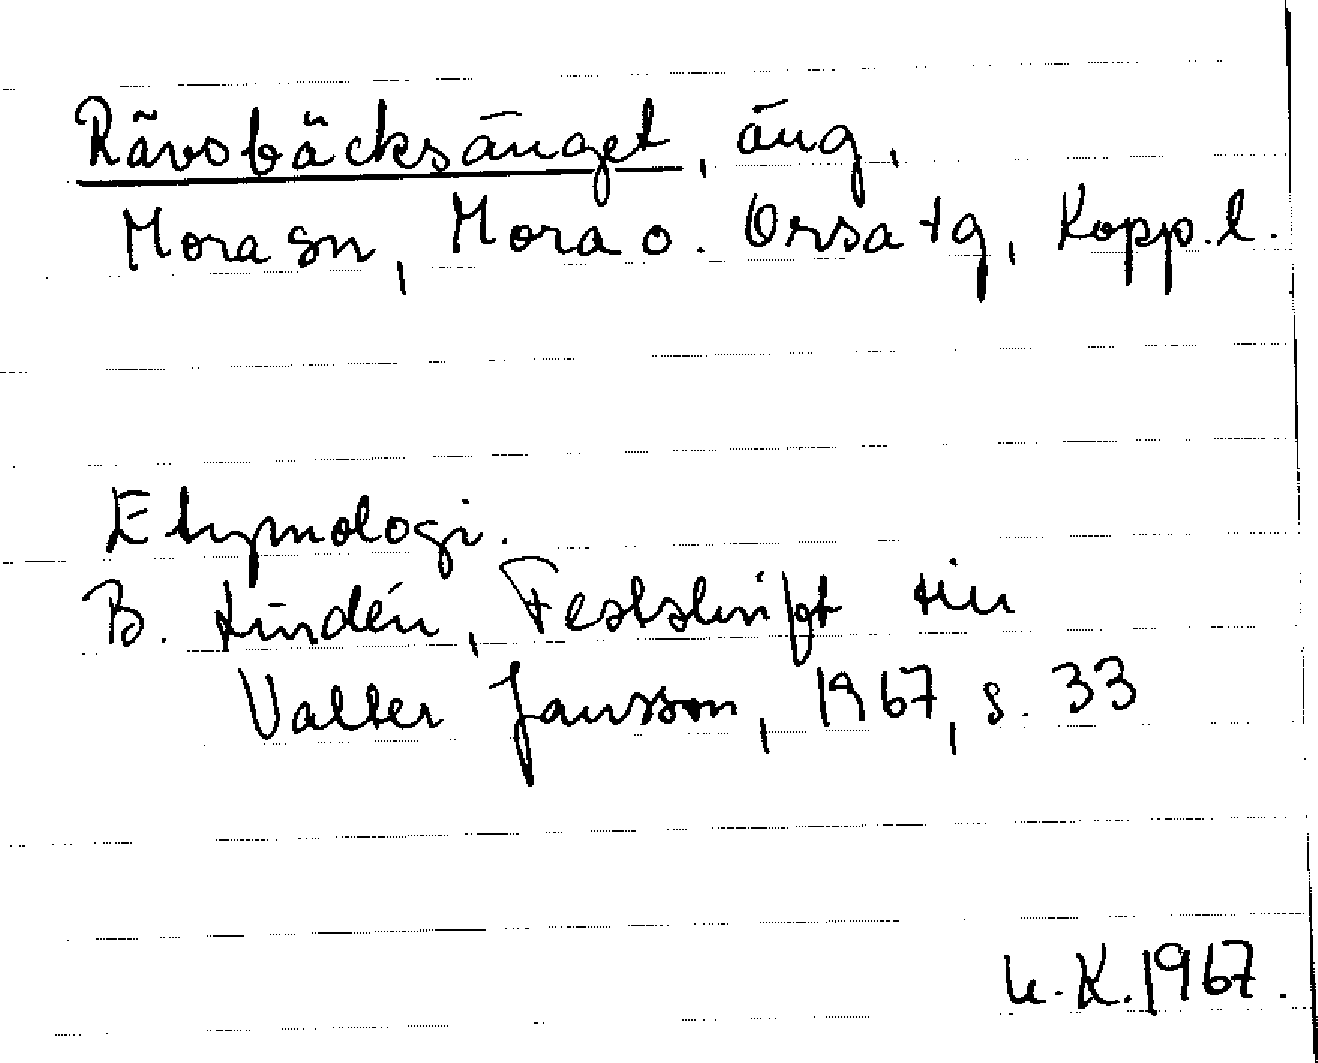 Rävsbäcksänget, äng,
Mora sn, Mora o. Orsa tg, Kopp. l.
Etymologi.
B. Lindén, Festskrift till
Valter Jansson, 1967, s. 33
K. 1967.